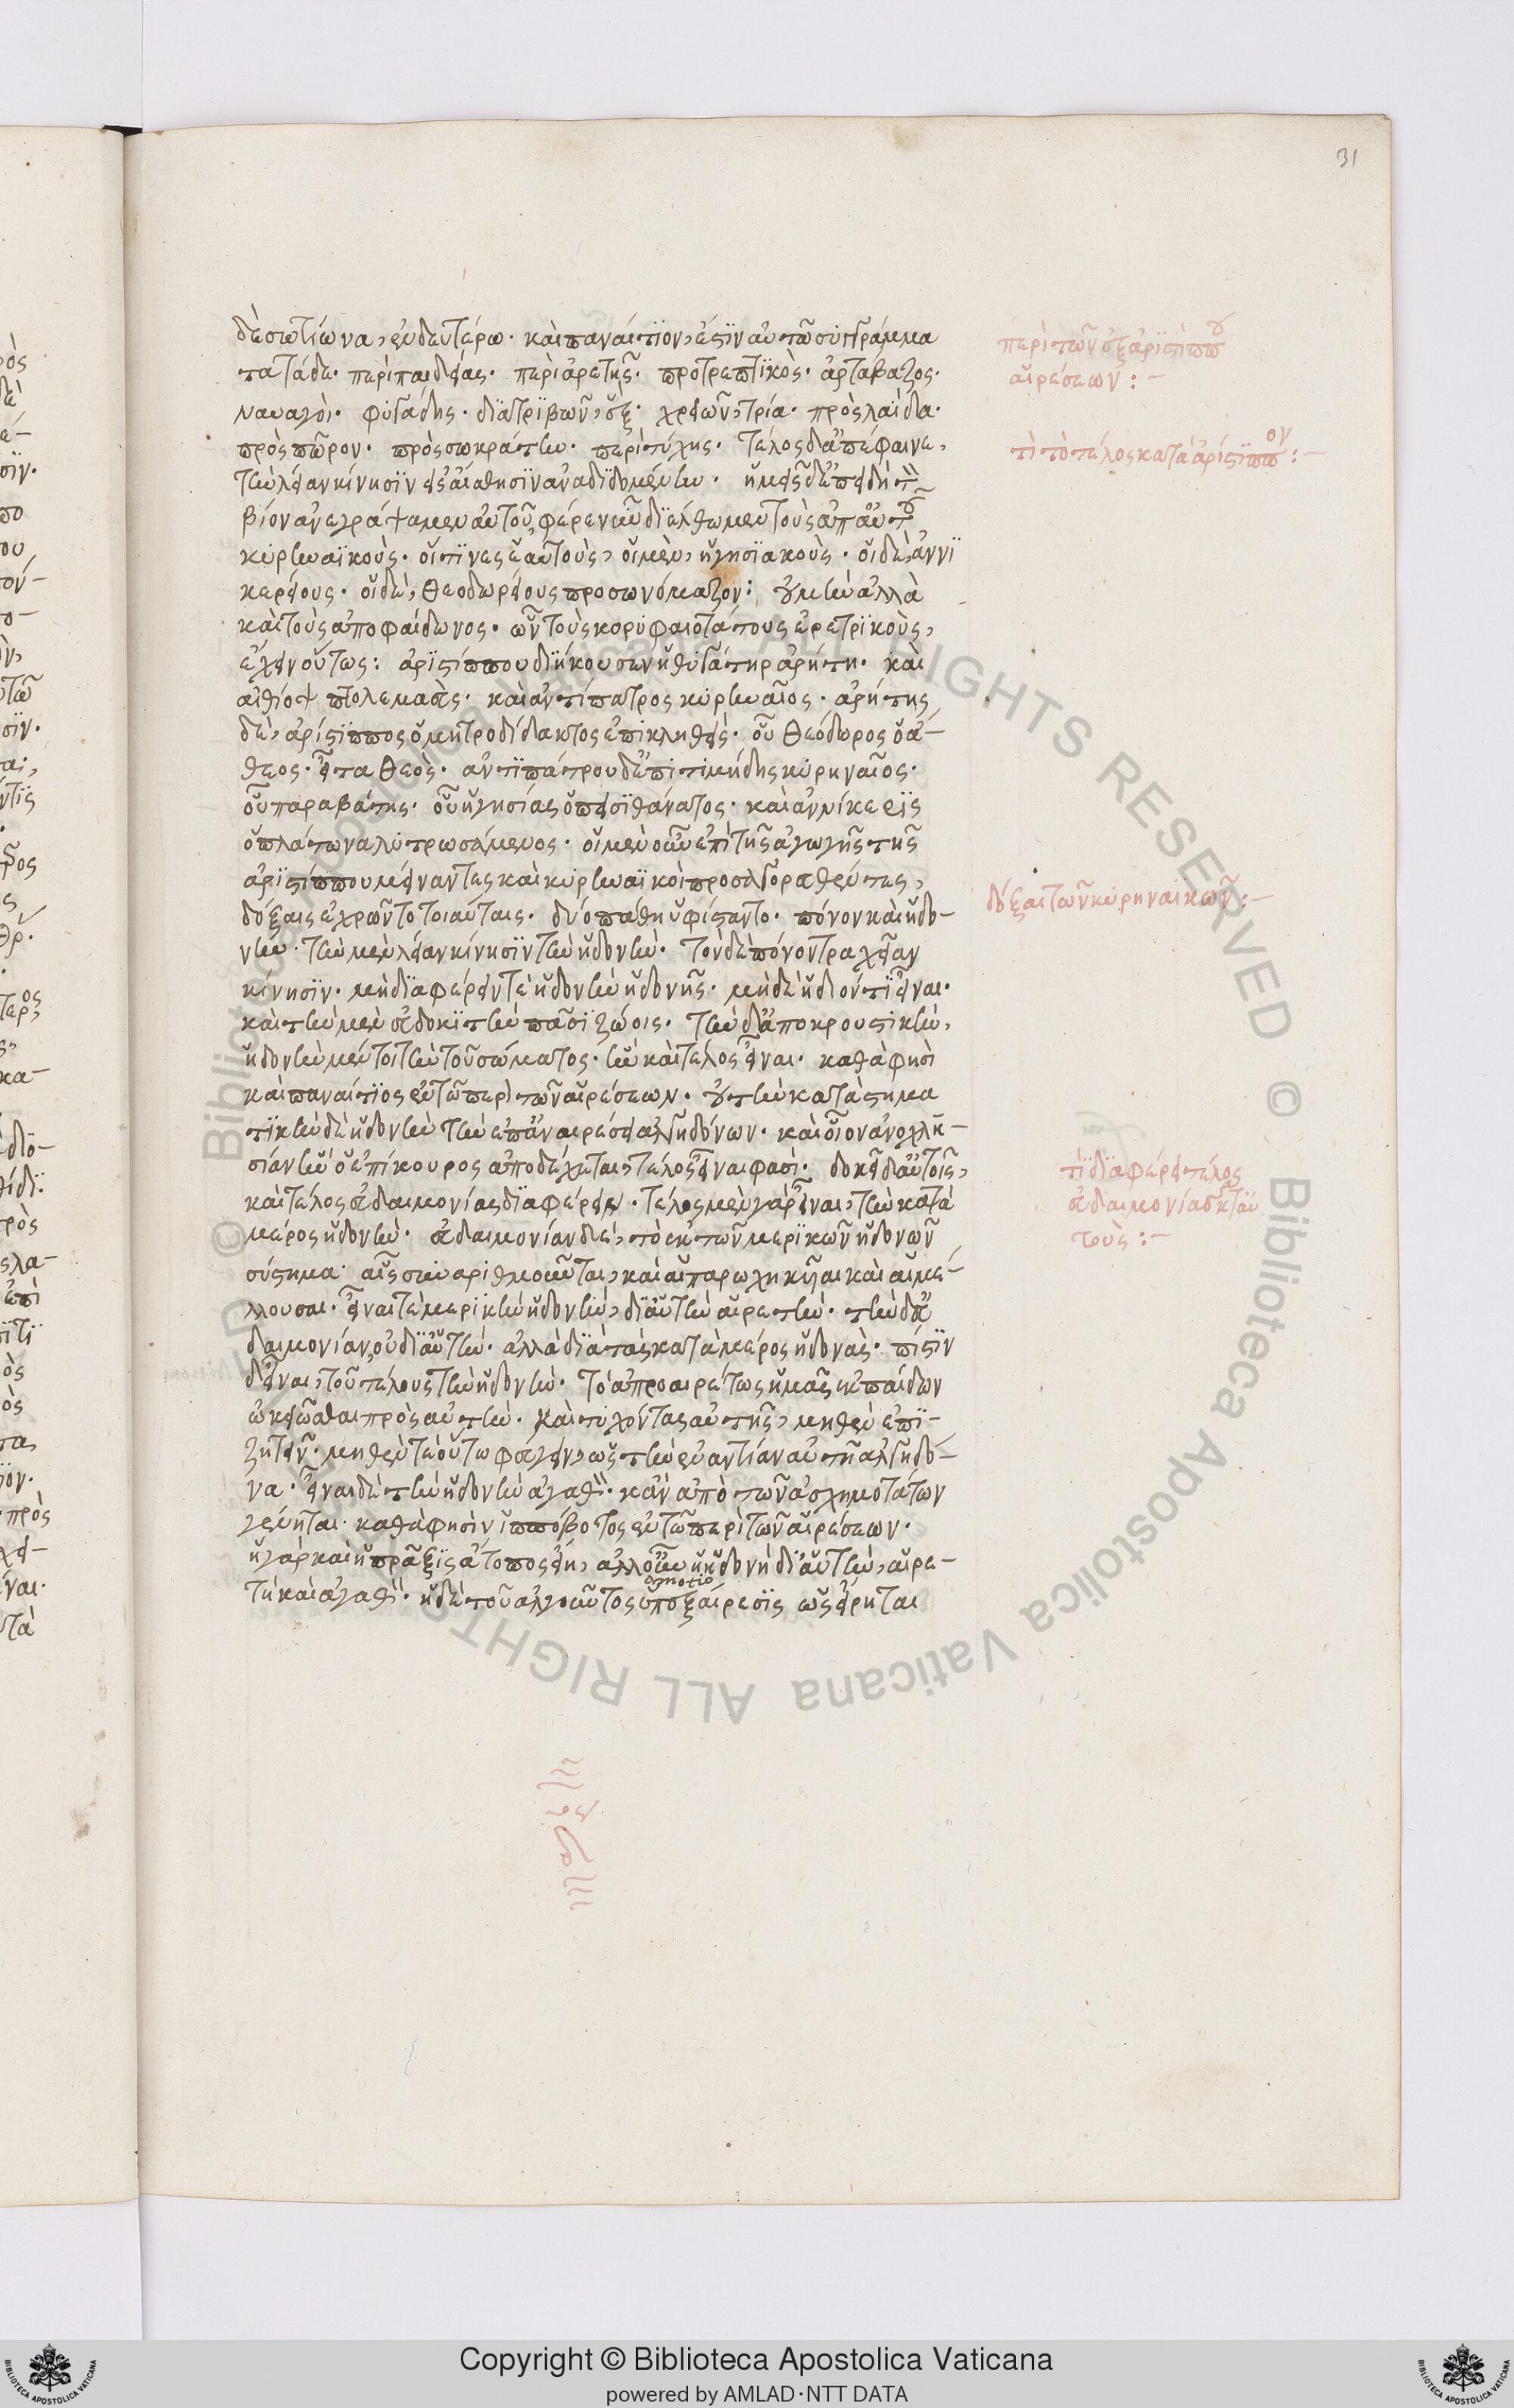 31
δὲ σωτίωνα, ἐν δευτέρω· καὶ παναίτιον, ἐστιν αὐτῶ συγγράμμα
τα τάδε· περὶ παιδείας· περὶ ἀρετῆς· προτρεπτικὸς· ἀρτάβαζος·
ναυαγοὶ· φυγάδης· διατριβῶν, ἓξ· χρειῶν, τρία· πρὸς λαΐδα·
πρὸς πῶρον· πρὸς σωκράτην· περὶ τύχης· τέλος δ' ἀπέφαινε,
τὴν λείαν κίνησιν εἰς αἴσθησιν ἀναδιδομένην· ἡμεῖς δ' ἐπειδὴ τὸν
βίον ἀνεγράψαμεν αὐτοῦ, φέρε νῦν διέλθωμεν τοὺς ἀπ' αὐτοῦ
κυρηναϊκοὺς· οἵτινες ἑαυτοὺς, οἱ μὲν, ἡγησιακοὺς· οἱ δὲ, ἀννι
κερείους· οἱ δὲ, θεοδωρείους προσωνόμαζον: οὐ μὴν ἀλλὰ
καὶ τοὺς ἀπο φαίδωνος· ὧν τοὺς κορυφαιοτάτους ἐρετρικοὺς,
ἔχειν οὕτως: ἀριστίππου διήκουσεν ἡ θυγάτηρ ἀρήτη· καὶ
αἰθίοψ πτολεμαεὺς· καὶ ἀντίπατρος κυρηναῖος· ἀρήτης
δὲ, ἀρίστιππος ὁ μητροδίδακτος ἐπικληθεὶς· οὗ θεόδωρος ὁ ἄ-
θεος· εἶτα θεὸς· ἀντιπάτρου δ' ἐπιτιμήδης κυρηναῖος·
οὗ παραβάτης· οὗ ἡγησίας ὁ πεισιθάνατος· καὶ ἀννίκερις
ὁ πλάτωνα λυτρωσάμενος· οἱ μὲν οὖν ἐπὶ τῆς ἀγωγῆς τῆς
ἀριστίππου μείναντες καὶ κυρηναϊκοὶ προσαγορευθέντες,
δόξαις ἐχρῶντο τοιαύταις· δύο πάθη ὑφίσταντο· πόνον καὶ ἡδο-
νήν· τὴν μὲν λείαν κίνησιν τὴν ἡδονὴν· τὸν δὲ πόνον τραχεῖαν
κίνησιν· μὴ διαφέρειν τὲ ἡδονὴν ἡδονῆς· μὴ δὲ ἥδιόν τι εἶναι·
καὶ τὴν μὲν εὐδοκιτὴν πᾶσι ζώοις· τὴν δ' ἀποκρουστικὴν,
ἡδονὴν μέντοι τὴν τοῦ σώματος· ἣν καὶ τέλος εἶναι· καθά φησὶ
καὶ παναίτιος ἐν τῶ περὶ τῶν αἱρέσεων· οὐ τὴν καταστημα
τικὴν δὲ ἡδονὴν τὴν ἐπ' ἀναιρέσει ἀλγηδόνων· καὶ οἷον ἀνοχλη-
σίαν ἣν ὁ ἐπίκουρος ἀποδέχεται, τέλος εἶναι φασὶ· δοκεῖ δ' αὐτοῖς,
καὶ τέλος εὐδαιμονίας διαφέρειν· τέλος μὲν γὰρ εἶναι, τὴν κατὰ
μέρος ἡδονὴν· εὐδαιμονίαν δὲ, τὸ ἐκ τῶν μερικῶν ἡδονῶν
σύστημα· αἷς συναριθμοῦνται, καὶ αἱ παρωχηκῖαι καὶ αἱ μέ-
λλουσαι· εἶναι τὲ μερικὴν ἡδονὴν, δι' αὑτὴν αἱρετὴν· τὴν δ' εὐ
δαιμονίαν, οὐ δι' αὑτὴν· ἀλλὰ διὰ τὰς κατὰ μέρος ἡδονὰς· πίστιν
δ' εἶναι, τοῦ τέλους τὴν ἡδονὴν· τὸ ἀπροαιρέτως ἡμᾶς ἐκ παίδων
ὠκειῶσθαι πρὸς αὐτὴν· καὶ τυχόντας αὐτῆς, μηθὲν ἐπι-
ζητεῖν· μηθὲν τὲ οὕτω φεύγειν, ὡς τὴν ἐναντίαν αὐτῆ ἀλγηδό-
να· εἶναι δὲ τὴν ἡδονὴν ἀγαθὸν· κἂν ἀπὸ τῶν ἀσχημοτάτων
γένηται· καθά φησὶν ἱππόβοτος ἐν τῶ περὶ τῶν αἱρέσεων·
ἡ γὰρ καὶ ἡ πρᾶξις ἄτοπος εἴη, ἀλλ' οὖν ἡ ἡδονὴ δι' αὑτὴν, αἱρε-
τὴ καὶ ἀγαθὸν· ἡ δὲ τοῦ ἀλγοῦντος ὑπεξαίρεσις ὡς εἴρηται
περὶ τῶν ἐξ ἀριστίππου
αἱρέσεων: -
τί τὸ τέλος κατὰ ἀρίστιππον: -
δόξαι τῶν κυρηναϊκῶν: -
τί διαφέρει τέλος
εὐδαιμονίας κατ' αὐ
τοὺς: -